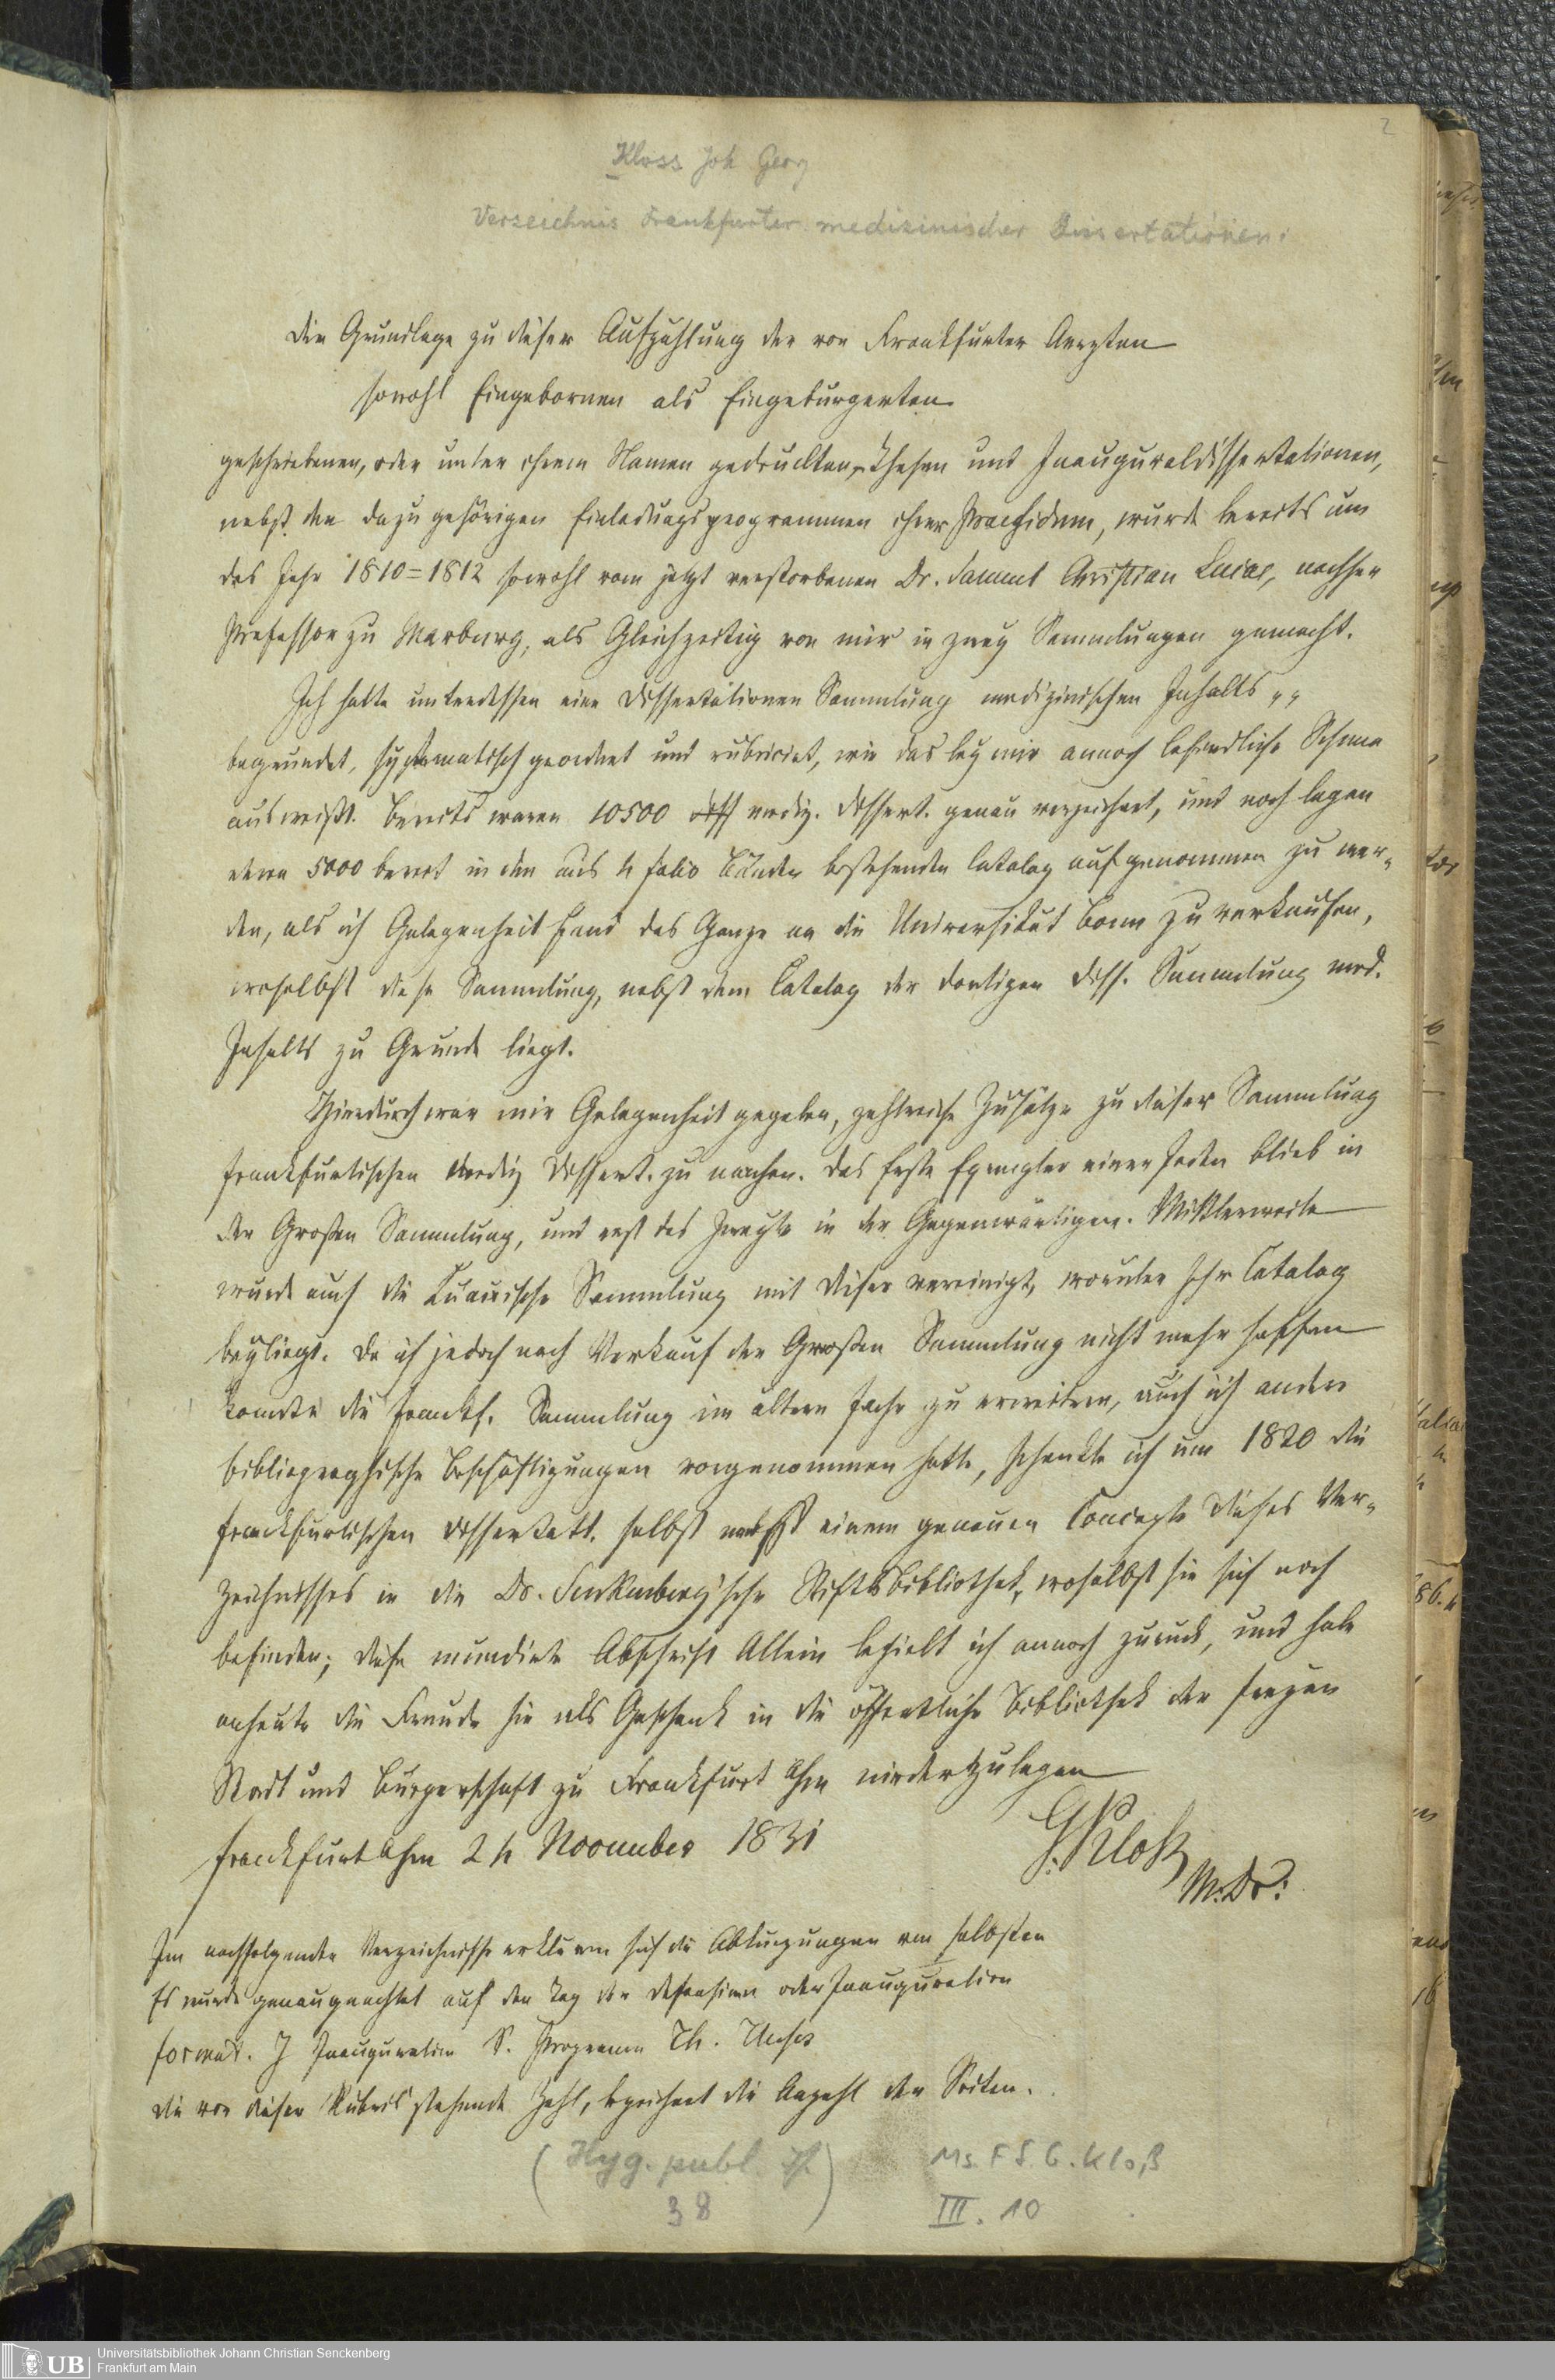 2
Kloss Joh Georg
Verzeichnis Frankfurter medizinischer Dissertationen.
Die Grundlage zu dieser Aufzählung der von Frankfurter Aerzten
sowohl Eingebornen als Eingebürgerten
geschriebenen, oder unter ihrem Namen gedruckten, Thesen und Inauguraldissertationen,
nebst den dazu gehörigen Einladungsprogrammen ihrer Praesidum, wurde bereits um
das Jahr 1810=1812 sowohl vom jetzt verstorbenen Dr. Samuel Christian Lucae, nachher
Professor zu Marburg, als Gleichzeitig von mir in zwey Sammlungen gemacht.
Ich hatte unterdessen eine Dissertationen Sammlung medizinischen Inhalts
begründet, systematisch geordnet und rubricirt, wie das bey mir annoch befindliche Schema
ausweißt. Bereits waren 10500 diss mediz. Dissert. genau verzeichnet, und noch lagen
etwa 5000 bereit in den aus 4 folio Bänden bestehenden Catalog aufgenommen zu wer-
den, als ich Gelegenheit fand das Ganze an die Universität Bonn zu verkaufen,
woselbst diese Sammlung, nebst dem Catalog der dortigen Diss. Sammlung med.
Inhalts zu Grunde liegt.
Hierdurch war mir Gelegenheit gegeben, zahlreiche Zusätze zu dieser Sammlung
frankfurtischen mediz Dissert. zu machen. Das Erste Exemplar einer jeden blieb in
der Großen Sammlung, und erst das Zweyte in der Gegenwärtigen. Mittlerweile
wurde auch die Lucaeische Sammlung mit dieser vereinigt, worüber Ihr Catalog
beyliegt. Da ich jedoch nach Verkauf der Großen Sammlung nicht mehr hoffen
konnte die Frankf. Sammlung im ältern Fache zu erweitern, auch ich andere
bibliographische Beschäftigungen vorgenommen hatte, schenkte ich um 1820 die
frankfurtischen Dissertatt. selbst nebst einem genauen Concepte dieses Ver-
zeichnisses in die Dr. Senkenberg'sche Stiftsbibliothek, woselbst sie sich noch
befinden; diese mundirte Abschrift Allein behielt ich annoch zurück, und habe
anheute die Freude sie als Geschenk in die öffentliche Bibliothek der freyen
Stadt und Bürgerschaft zu Frankfurt a/m niederzulegen
Frankfurt a/m 24 November 1831
G. Kloß
M. Dr:
Im nachfolgenden Verzeichnisse erklären sich die Abkürzungen von selbsten
Es wurde genau geachtet auf den Tag der Defension oder Inauguration
format. J Inauguration P. Programm Th. Theses
die vor dieser Rubrik stehende Zahl, bezeichnet die Anzahl der Seiten.
(Hyg. publ. 38)
Ms. F f. G. Kloß
III. 10
UB
Universitätsbibliothek Johann Christian Senckenberg
Frankfurt am Main